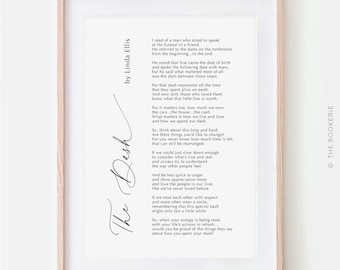 The Dash
by Linda Ellis
I read of a man who stood to speak
at the funeral of a friend.
He referred to the dates on the tombstone
from the beginning...to the end.
He noted that first came the date of birth
and spoke the following date with tears,
but he said what mattered most of all
was the dash between those years.
For that dash represents all the time
that they spent alive on earth.
And now only those who loved them
know what that little line is worth.
For it matters not, how much we own,
the cars...the house...the cash.
What matters is how we live and love
and how we spend our dash.
So, think about this long and hard.
Are there things you'd like to change?
For you never know how much time is left
that can still be rearranged.
If we could just slow down enough
to consider what's true and real
and always try to understand
the way other people feel.
And be less quick to anger
and show appreciation more
and love the people in our lives
like we've never loved before.
If we treat each other with respect
and more often wear a smile,
remembering that this special dash
might only last a little while.
So, when your eulogy is being read,
with your life's actions to rehash...
would you be proud of the things they say
about how you spent your dash?
© THE BOOKERIE